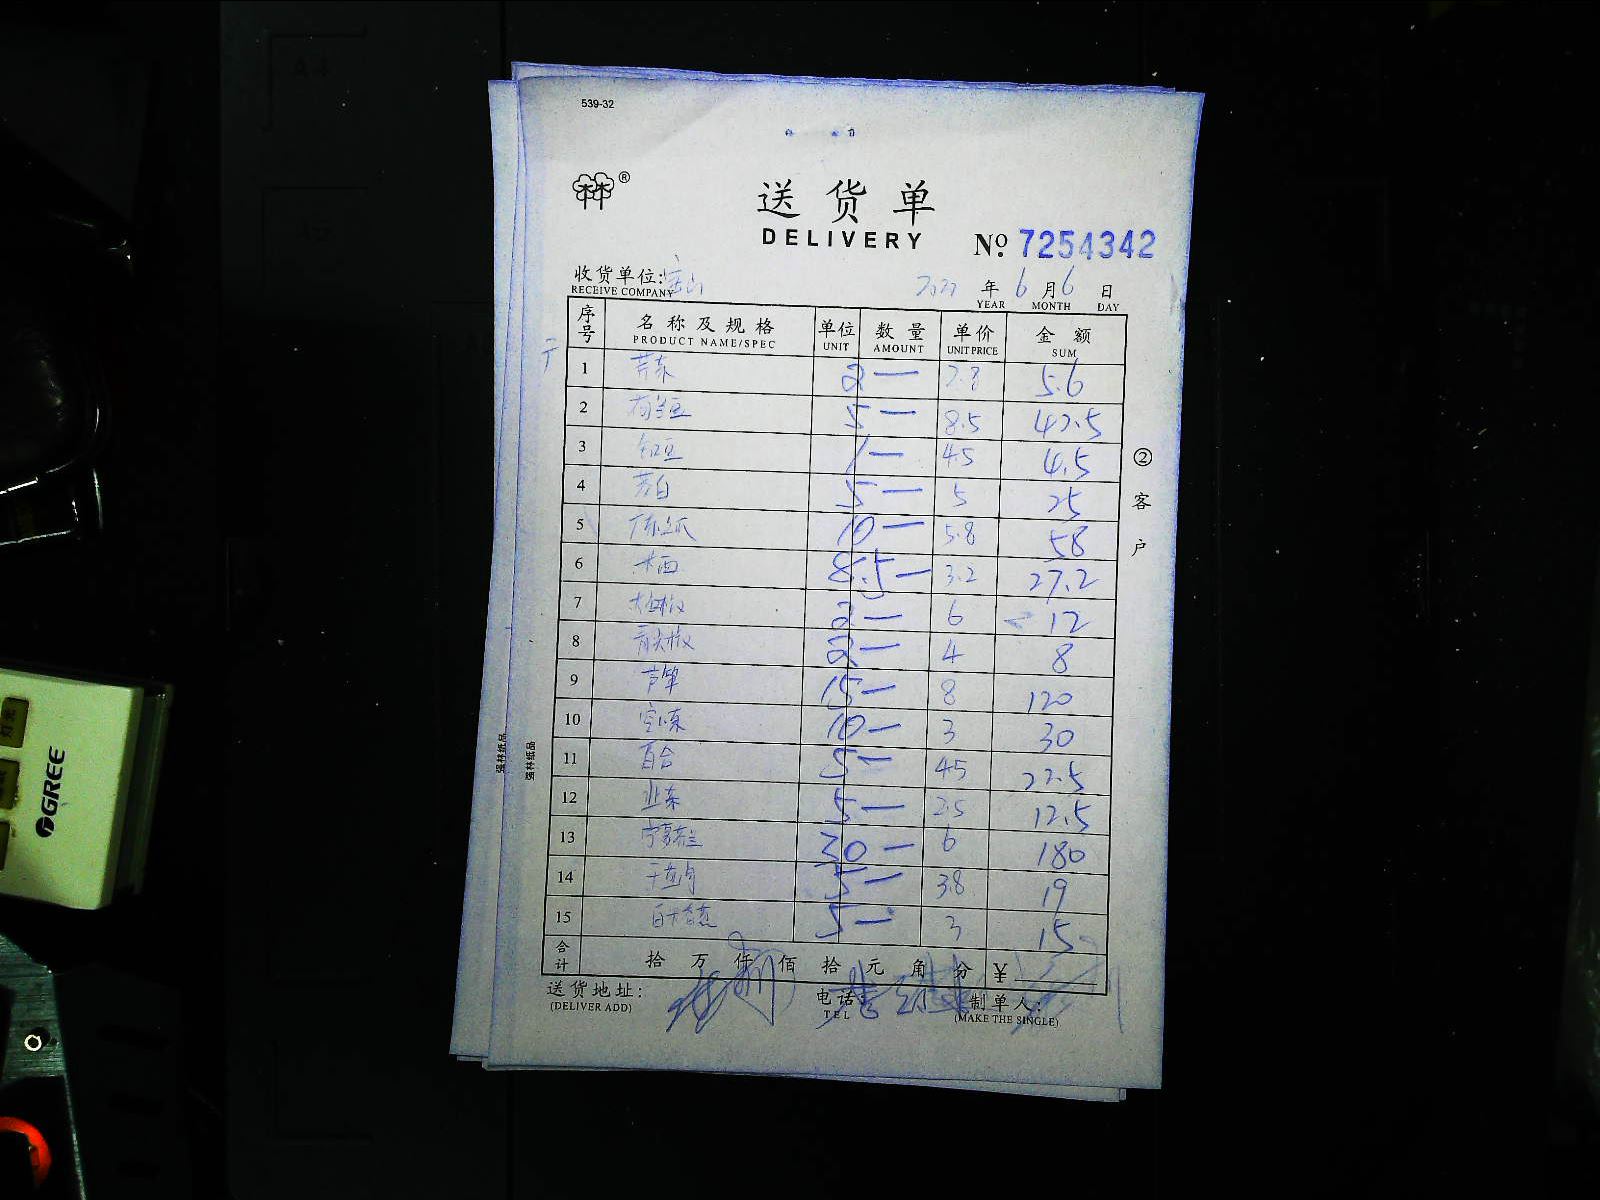 539-32
®
送货单
DELIVERY
No. 7254342
收货单位:
RECEIVE COMPANY
年 6 月 6 日
YEAR MONTH DAY
序号 名称及规格 单位 数量 单价 金额
PRODUCT NAME/SPEC UNIT AMOUNT UNIT PRICE SUM
1 2— 2.8 5.6
2 荷兰豆 5— 8.5 42.5
3 豇豆 1— 4.5 4.5
4 茭白 5— 5 25
5 10— 5.8 58
6 8.5— 3.2 27.2
7 2— 6 12
8 青尖椒 2— 4 8
9 芦笋 15— 8 120
10 10— 3 30
11 百合 5— 4.5 22.5
12 5— 2.5 12.5
13 30— 6 180
14 5— 3.8 19
15 5— 3 15
合计 拾 万 仟 佰 拾 元 角 分 ¥
送货地址:
(DELIVER ADD)
电话:
TEL
制单人:
(MAKE THE SINGLE)
②客户
强林纸品
强林纸品
GREE